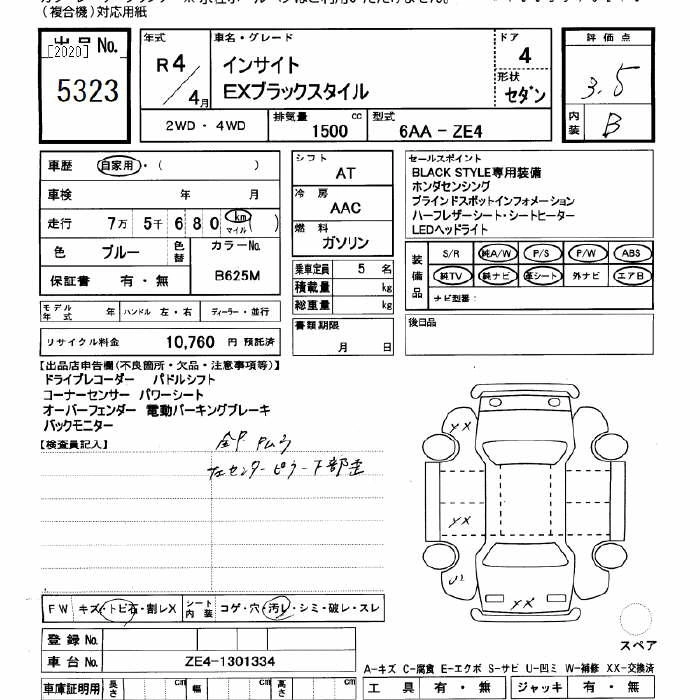 (複合機)対応用紙
出品No.
[2020]
5323
年式
R4/4月
車名・グレード
インサイト
EXブラックスタイル
ドア
4
形状
セダン
評価点
3.5
内装
B
2WD・4WD
排気量
1500 cc
型式
6AA-ZE4
車歴 自家用・( )
車検 年 月
走行 7万 5千 6 8 0 km マイル ( )
色 ブルー
色替
カラーNo.
B625M
保証書 有・無
シフト
AT
冷房
AAC
燃料
ガソリン
乗車定員 5 名
積載量 kg
総重量 kg
書類期限
月 日
セールスポイント
BLACK STYLE専用装備
ホンダセンシング
ブラインドスポットインフォメーション
ハーフレザーシート・シートヒーター
LEDヘッドライト
装備品
S/R 純A/W P/S P/W ABS
純TV 純ナビ 革シート 外ナビ エアB
ナビ型番:
後日品
モデル年式 年 ハンドル 左・右 ディーラー・並行
リサイクル料金 10,760 円 預託済
【出品店申告欄(不良箇所・欠品・注意事項等)】
ドライブレコーダー パドルシフト
コーナーセンサー パワーシート
オーバーフェンダー 電動パーキングブレーキ
バックモニター
【検査員記入】
センターピラー下部歪
XX
XX
XX
FW キズ・トビ石・割レX
シート内装 コゲ・穴・汚レ・シミ・破レ・スレ
登録No.
車台No. ZE4-1301334
車庫証明用 長さ cm 幅 cm 高さ cm
スペア
A-キズ C-腐食 E-エクボ S-サビ U-凹ミ W-補修 XX-交換済
工具 有・無 ジャッキ 有・無